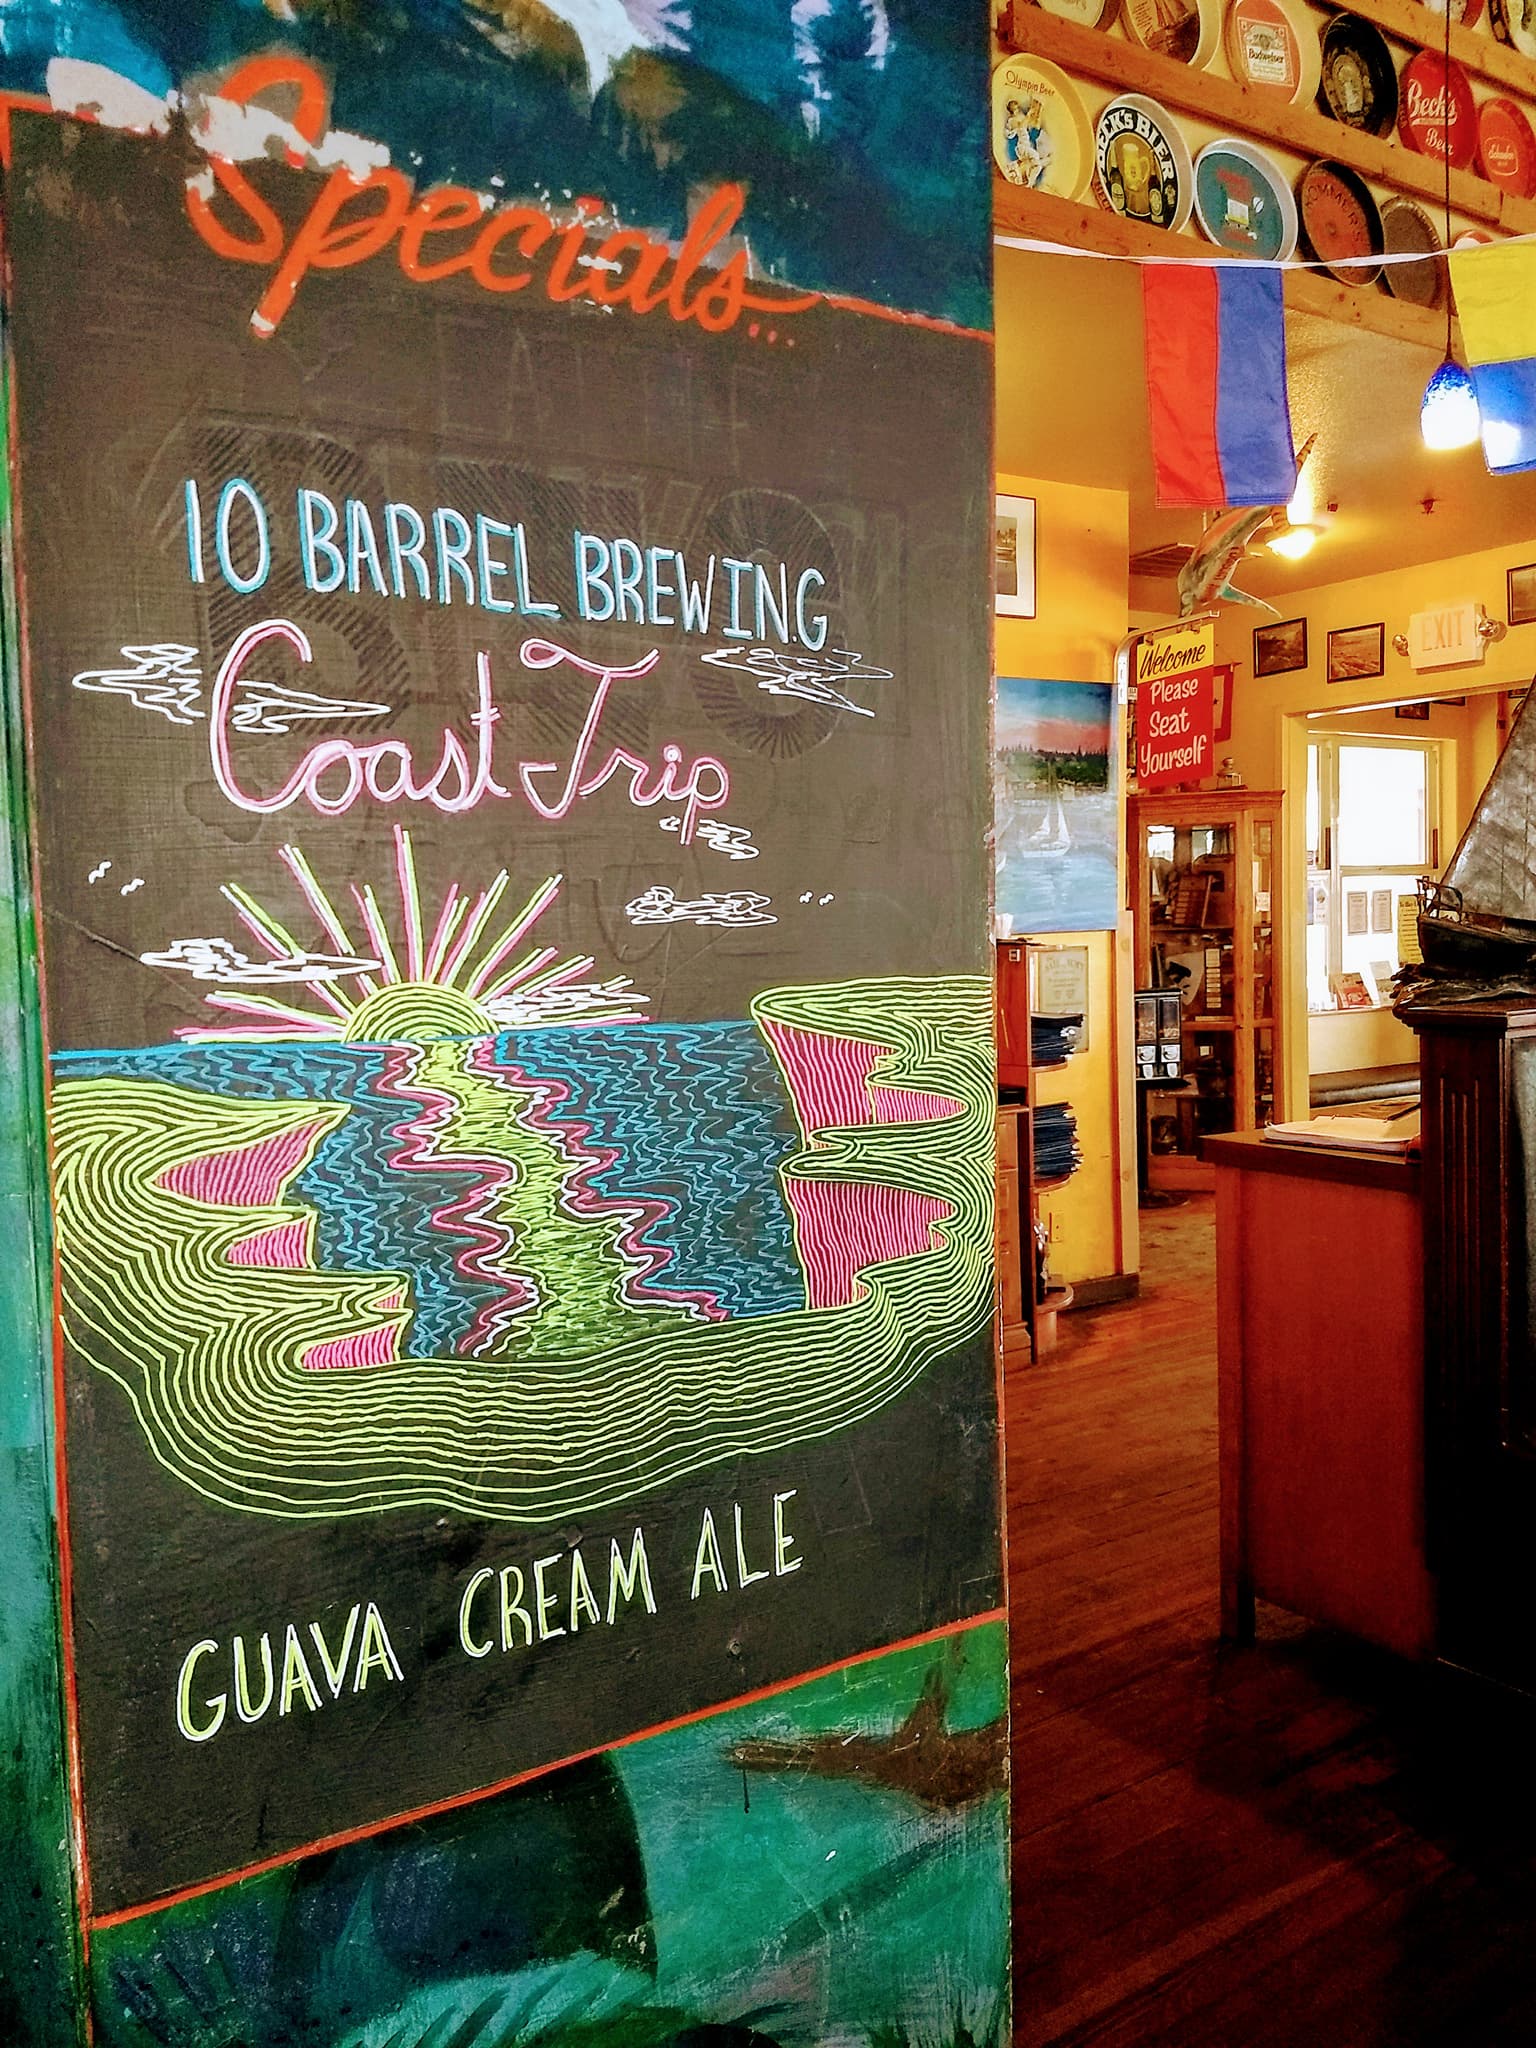 Specials...
10 BARREL BREWING
Coast Trip
GUAVA CREAM ALE
Olympia Beer
BECK'S BIER
Budweiser
Beck's
Beer
Welcome
Please
Seat
Yourself
EXIT